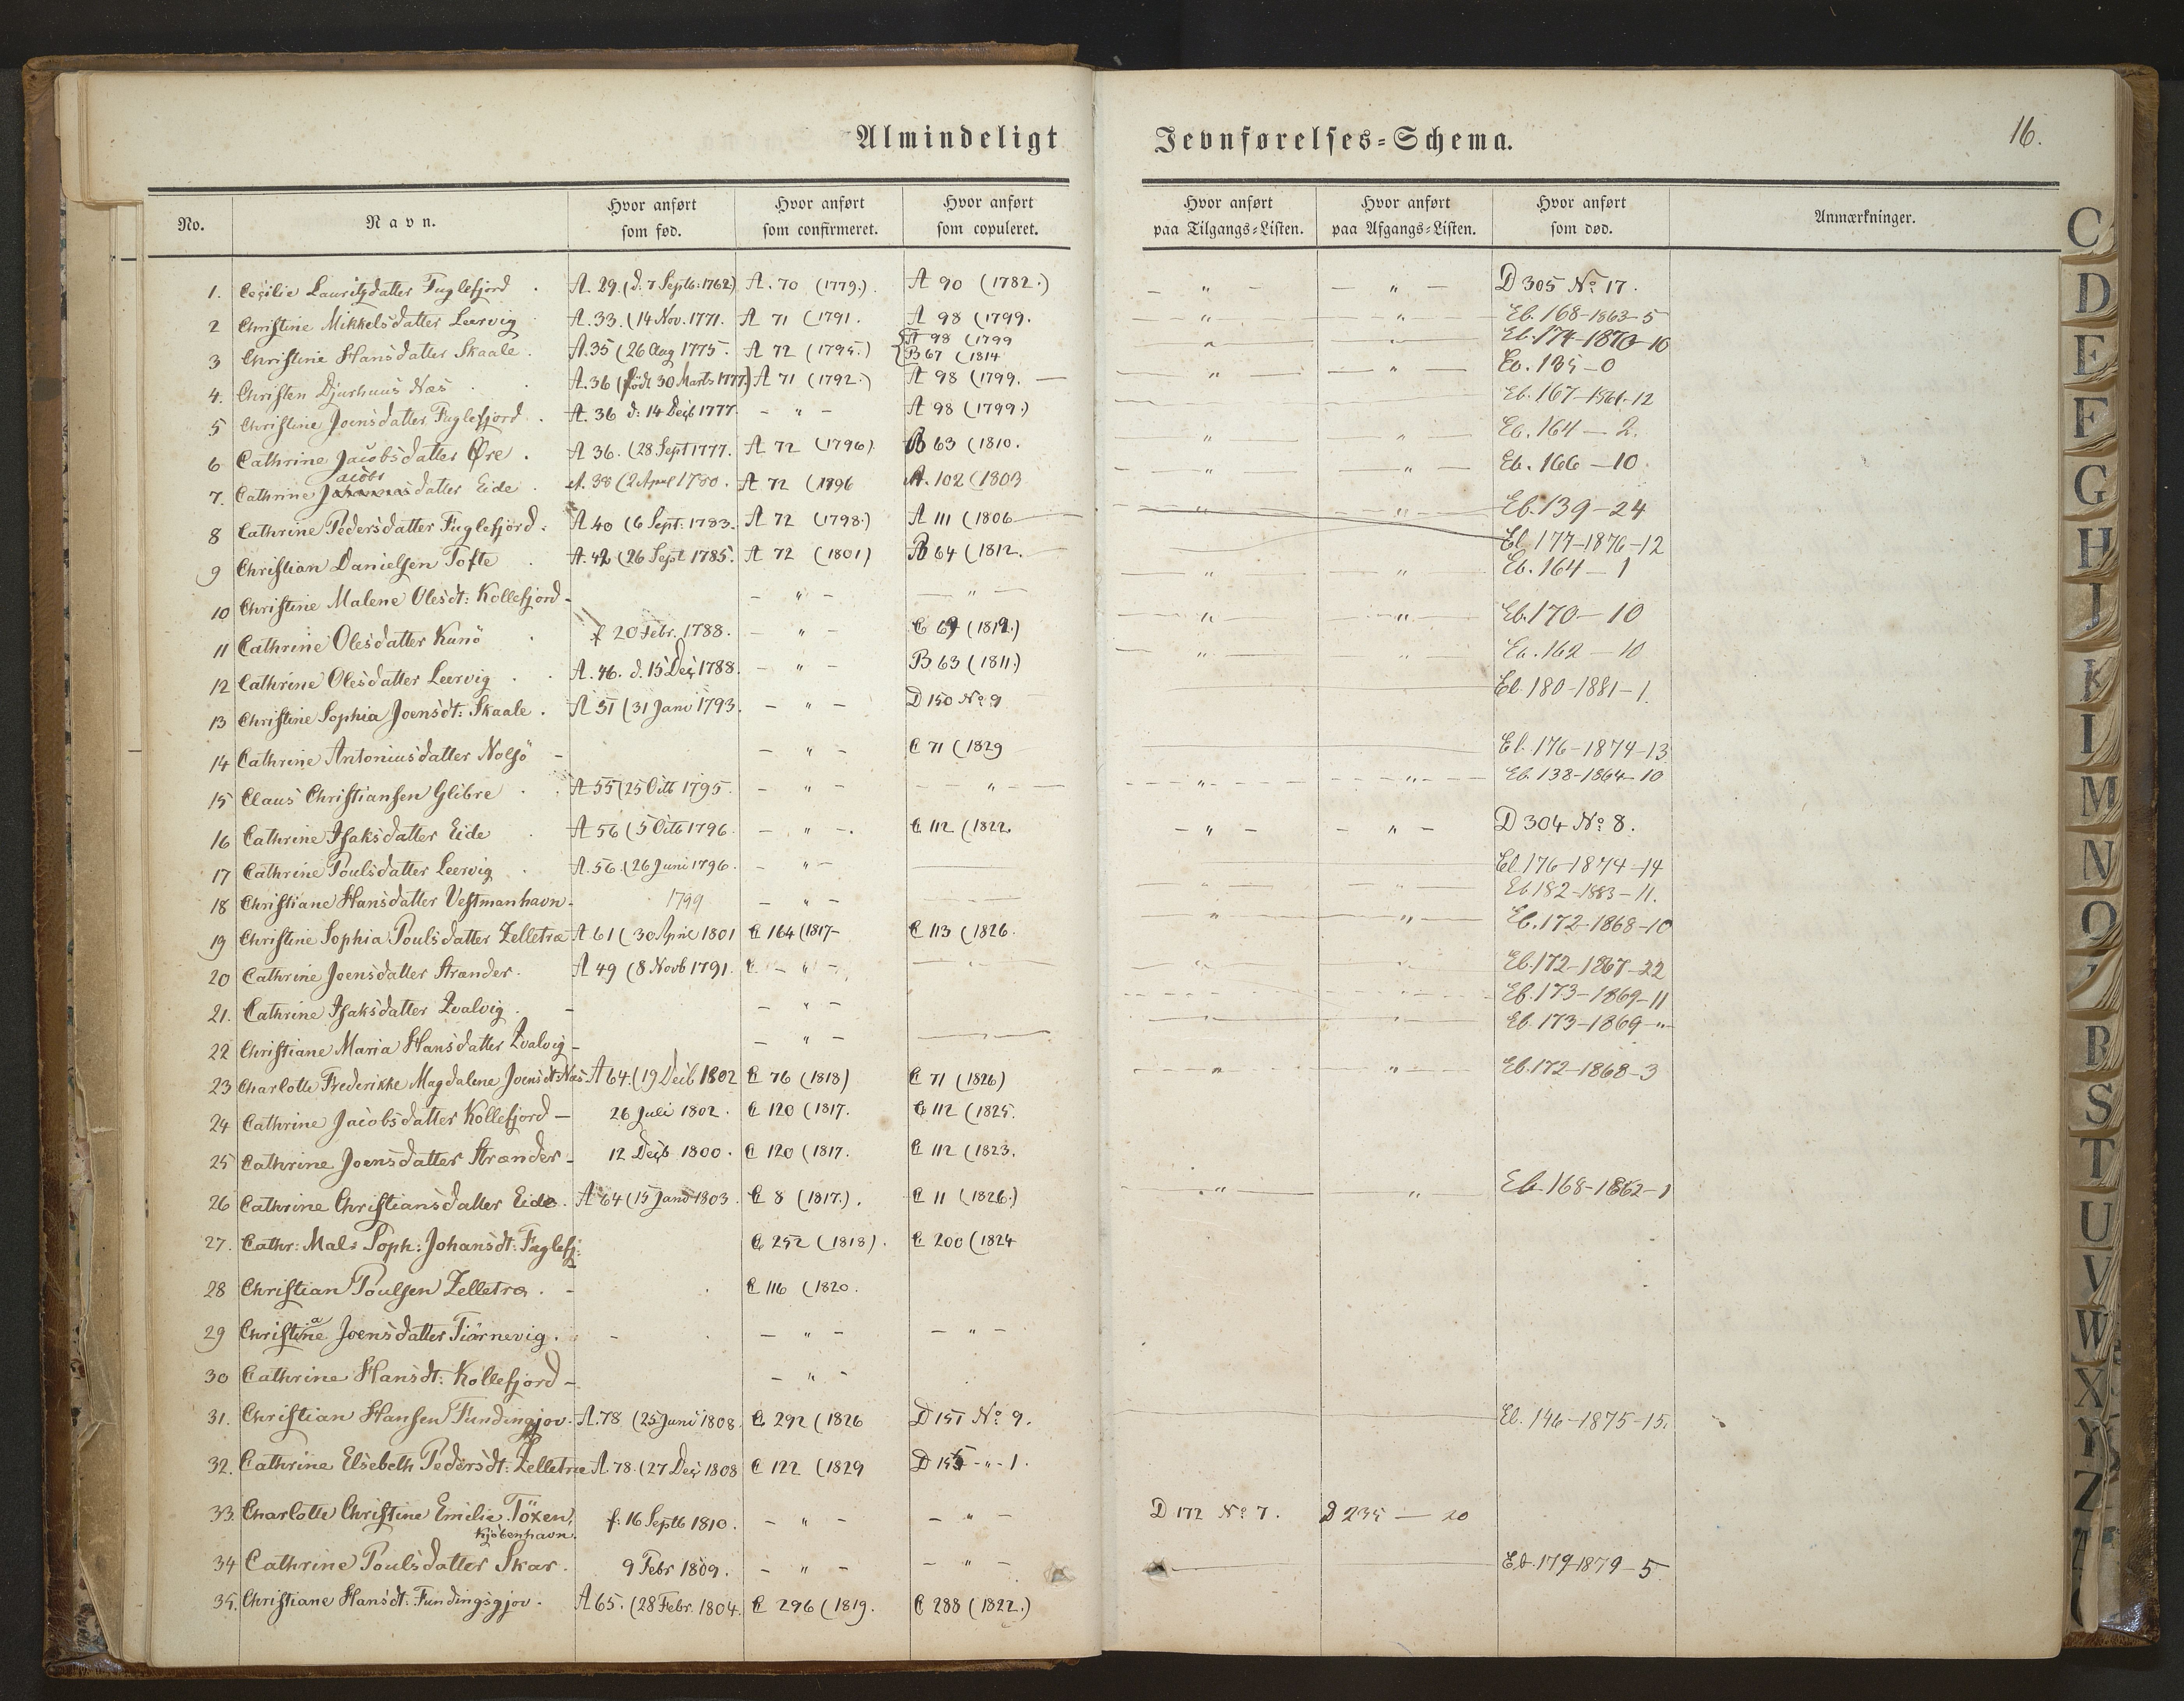 Almindeligt Jevnførelses=Schema. 16.
No. Navn. Hvor anført som fød. Hvor anført som confirmeret. Hvor anført som copuleret. Hvor anført paa Tilgangs=Listen. Hvor anført paa Afgangs=Listen. Hvor anført som død. Anmærkninger.
1. Cecilie Lauritzdatter Fuglefjord . A. 29. (d. 7 Septb: 1762) A. 70 (1779.) A 90 (1782.) — " — — " — D 305 No 17.
2 Christine Mikkelsdatter Leervig A. 33. (14 Nov. 1771. A 71 (1791. A 98 (1799. — " — — " — Eb. 168-1863-5
3 Christine Hansdatter Skaale. A. 35 (26 Aug 1775. A 72 (1795.) {A 98 (1799 {B 67 (1814 — " — — " — Eb. 174-1870-10
4. Christen Djurhuus Næs . A. 36 (född 30 Marts 1777.) A 71 (1792.) A 98 (1799. — — " — — " — Eb. 135-0
5 Christine Joensdatter Fuglefjord . A. 36 d: 14 Decb 1777. — " — A 98 (1799.) Eb. 167-1861-12
6 Cathrine Jacobsdatter Øre . A 36. (28 Sept 1777. A 72 (1796). B 63 (1810. " — " — Eb. 164 — 2.
7. Cathrine Jacobs datter Eide . A. 38 (2 April 1780. A 72 (1796 A. 102 (1803 — " — " — Eb. 166 — 10.
8 Cathrine Pedersdatter Fuglefjord . A 40 (6 Sept: 1783. A 72 (1798.) A 111 (1806 — " — " — Eb. 139-24
9 Christian Danielsen Tofte . A. 42 (26 Sept 1785. A 72 (1801) B 64 (1812. Eb. 177-1876-12
10 Christine Malene Olesdt: Kollefjord - — " — — " — " — " — Eb. 164 — 1
11 Cathrine Olesdatter Kunö . f 20 Febr. 1788. — " — C 69 (1819.) — " — " — Eb. 170 — 10
12 Cathrine Olesdatter Leervig . A. 46. d. 15 Dec 1788. — " — B 63 (1811.) — " — " — Eb. 162 — 10
13 Christine Sophia Joensdt: Skaale . A 51 (31 Janv 1793. — " — D 150 No 9 Eb. 180-1881-1.
14 Cathrine Antoniusdatter Nolsö — — " — C 71 (1829 Eb. 176-1874-13
15 Claus Christiansen Glibre . A 55 (25 Octb 1795. — " — — " — — " — — " — Eb. 138-1864-10
16 Cathrine Isaksdatter Eide . A 56 (5 Octb 1796. — " —. C 112 (1822. — " — — " — D 304 No 8.
17 Cathrine Poulsdatter Leervig . A. 56. (26 Juni 1796. — " — Eb. 176-1874-14
18 Christiane Hansdatter Vestmanhavn - 1799 — " — — " — — " — Eb 182-1883-11.
19 Christine Sophia Poulsdatter Zelletræ A 61 (30 April 1801 C 164 (1817- C 113 (1826. — " — " — Eb. 172-1868-10
20 Cathrine Joensdatter Strænder. A 49 (8 Novb 1791. C — " — — " — — " — Eb. 172-1867-22
21. Cathrine Isaksdatter Qvalvig . - — " — — " — Eb. 173-1869-11
22 Christiane Maria Hansdatter Qvalvig - — " — — " — — " — Eb. 173-1869-"-
23 Charlotte Frederikke Magdalene Joensdt: Næs A 64. (19 Decb 1802 C 76 (1818) C 71 (1826) — " — " — Eb. 172-1868-3
24 Cathrine Jacobsdatter Kollefjord — 26 Juli 1802. C 120 (1817. C 112 (1825.
25 Cathrine Joensdatter Strænder - 12 Decb 1800. C 120 (1817. C 112 (1823.
26 Cathrine Christiansdatter Eide . A 64 (15 Janv 1803. C 8 (1817.). C 11 (1826.) — " — " — Eb. 168-1862-1
27. Cathr: Mal: Soph: Johansdt: Fuglefj: C 252 (1818). C 200 (1824
28 Christian Poulsen Zelletræ . - C 116 (1820.
29 Christine a Joensdatter Tiörnevig . - — " — — " —
30 Cathrine Hansdt: Kollefjord - — " —
31. Christian Hansen Fundingjov. A. 78 (25 Juni 1808. C 292 (1826 D 151 No 9. Eb. 146-1875-15.
32. Cathrine Elsebeth Pedersdt: Zelletræ A. 78. (27 Dec 1808 C 122 (1829 D 155 - " - 1.
33. Charlotte Christine Emilie Töxen, Kjøbenhavn. f: 16 Septb 1810. — " — — " — D 172 No 7. D 235 — 20
34 Cathrine Poulsdatter Skar. 9 Febr 1809. — " — — " — Eb. 179-1879-5
35. Christiane Hansdt: Fundingsgjov. A 65. (28 Febr. 1804. C 296 (1819. C 288 (1822.)
C
D
E
F
G
H
J
K
L
M
N
O
B
S
T
U
V
W
X
Y
Z